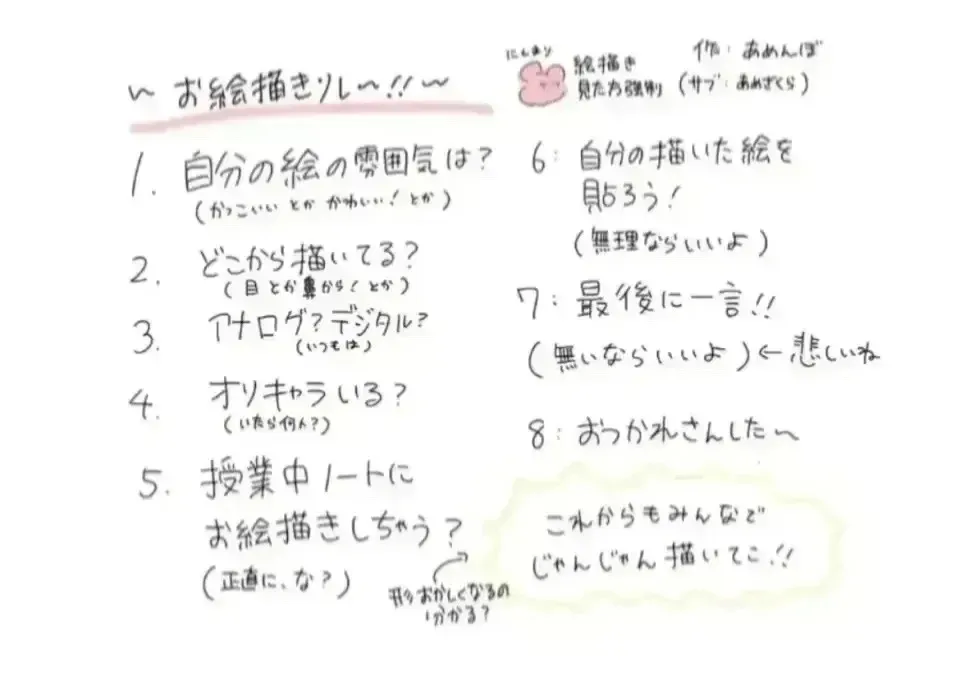 〜お絵描きリレ〜!!〜
にしあり
絵描き
見た方強制
作：あめんぼ
(サブ：あめざくら)
1. 自分の絵の雰囲気は？
(かっこいい とか かわいい！とか)
2. どこから描いてる？
(目とか鼻から！とか)
3. アナログ？デジタル？
(いつもは)
4. オリキャラいる？
(いたら何人？)
5. 授業中ノートに
お絵描きしちゃう？
(正直に、な？)
形おかしくなるの
分かる？
6：自分の描いた絵を
貼ろう！
(無理ならいいよ)
7：最後に一言!!
(無いならいいよ)←悲しいね
8：おつかれさんした〜
これからもみんなで
じゃんじゃん描いてこ!!